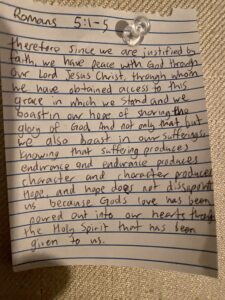 Romans 5:1-5
therefore since we are justified by
faith, we have peace with God through
our Lord Jesus Christ, through whom
we have obtained access to this
grace in which we stand and we
boast in our hope of sharing the
glory of God. And not only that but
we also boast in our sufferings,
knowing that suffering produces
endurance and endurance produces
character and character produces
Hope, and hope does not disappoint
us because Gods love has been
poured out into our hearts through
the Holy Spirit that has been
given to us.